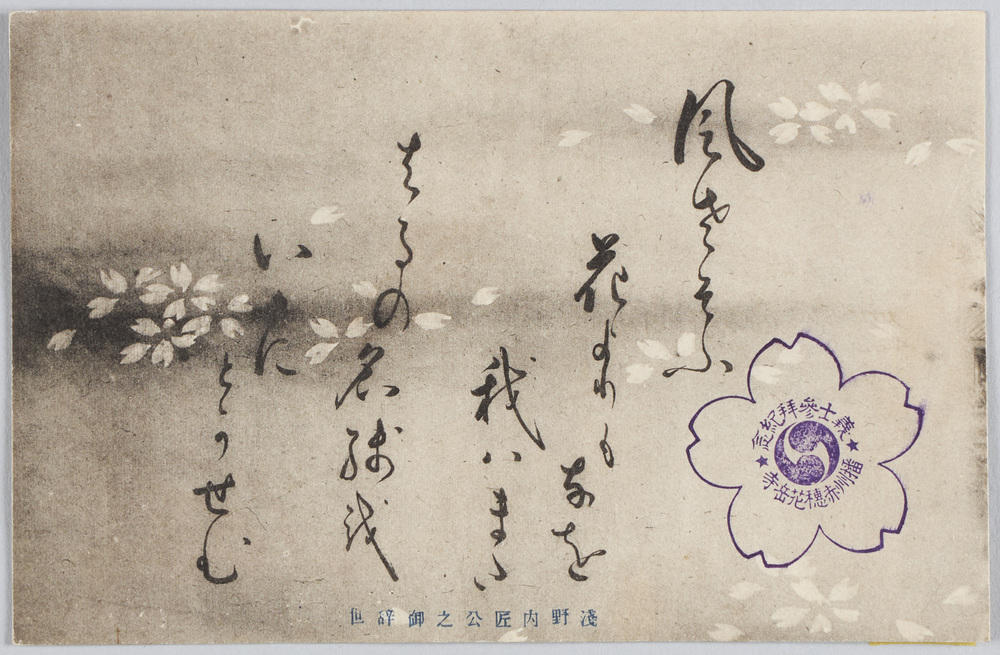 風さそふ
花よりもなを
我ハまた
はるの名残を
いかに
とかせむ
淺野内匠公之御辞世
義士參拜紀念
播州赤穗花岳寺